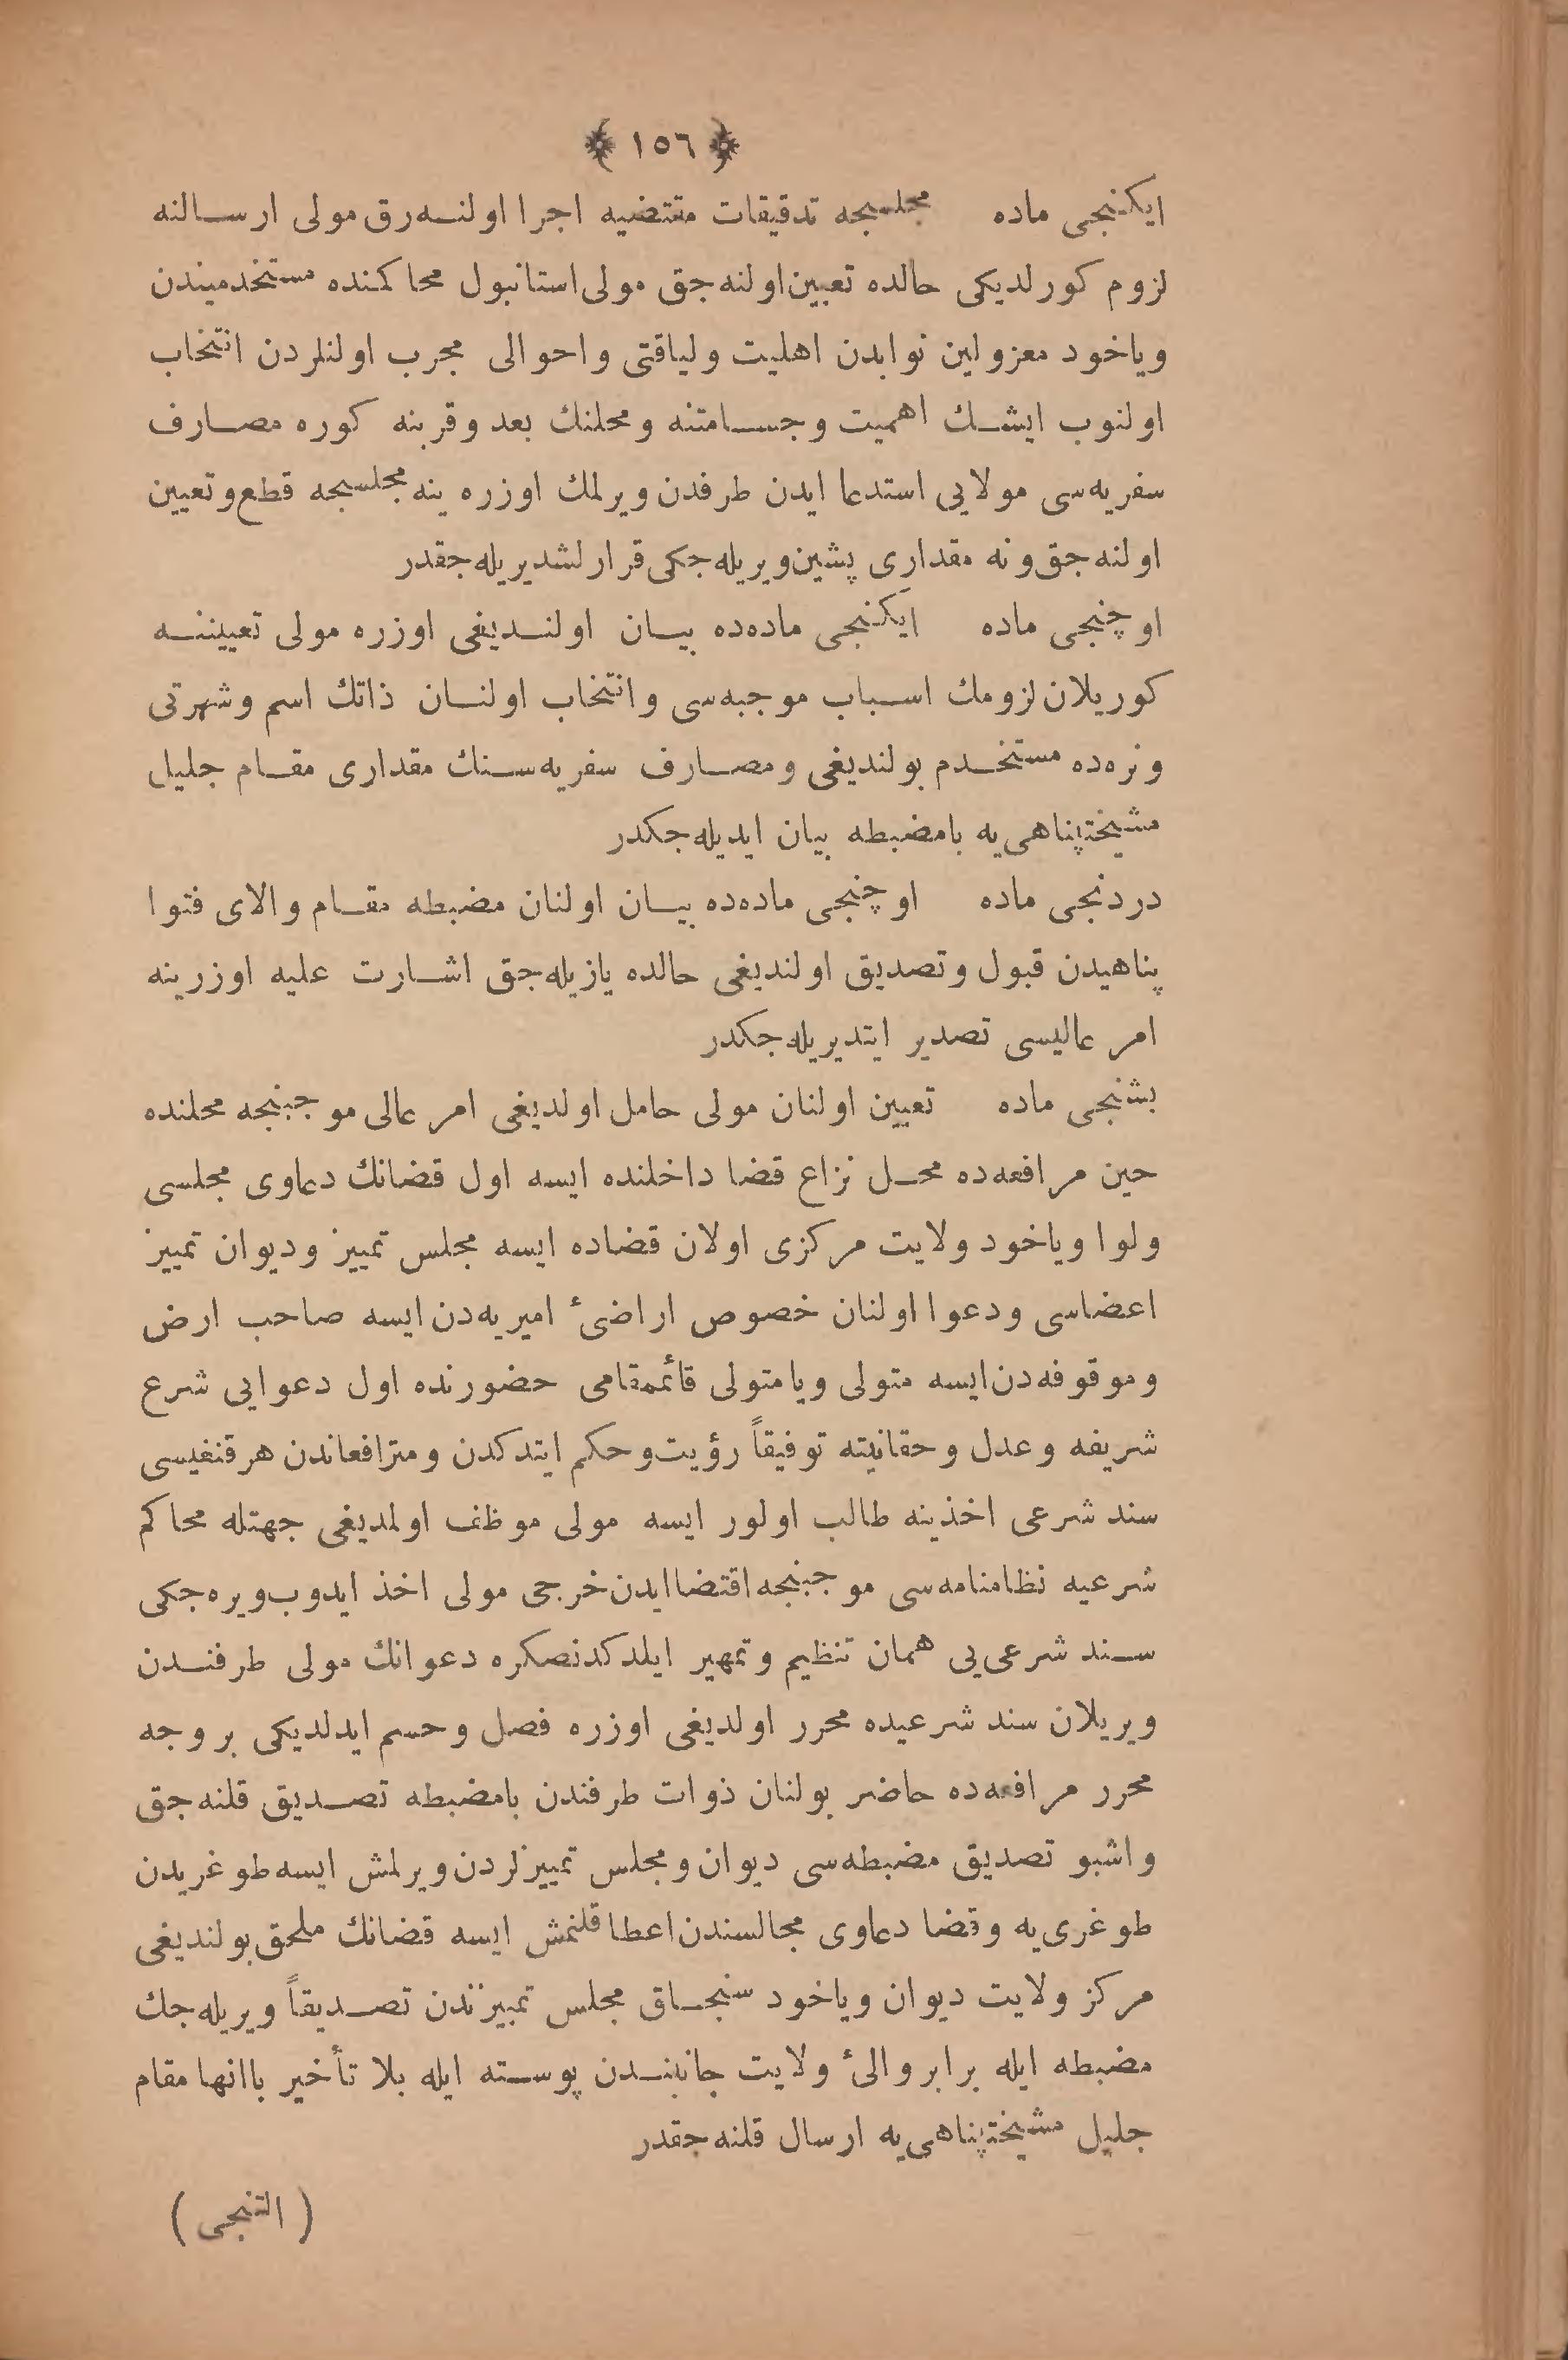 ﴿ ١٥٦ ﴾
ایكنجی ماده مجلسجه تدقیقات مقتضیه اجرا اولنه‌رق مولی ارسالنه
لزوم كورلدیكی حالده تعیین اولنه‌جق مولی استانبول محاكمنده مستخدمیندن
ویاخود معزولین نوابدن اهلیت ولیاقتی واحوالی مجرب اولنلردن انتخاب
اولنوب ایشك اهمیت وجسامتنه ومحلنك بعد وقربنه كوره مصارف
سفریه‌سی مولایی استدعا ایدن طرفدن ویرلمك اوزره ینه مجلسجه قطع وتعیین
اولنه‌جق ونه مقداری پشین ویریله‌جكی قرارلشدیریله‌جقدر
اوچنجی ماده ایكنجی ماده‌ده بیان اولندیغی اوزره مولی تعییننه
كوریلان لزومك اسباب موجبه‌سی وانتخاب اولنان ذاتك اسم وشهرتی
ونره‌ده مستخدم بولندیغی ومصارف سفریه‌سنك مقداری مقام جلیل
مشیختپناهی‌یه بامضبطه بیان ایدیله‌جكدر
دردنجی ماده اوچنجی ماده‌ده بیان اولنان مضبطه مقام والای فتوا
پناهیدن قبول وتصدیق اولندیغی حالده یازیله‌جق اشارت علیه اوزرینه
امر عالیسی تصدیر ایتدیریله‌جكدر
بشنجی ماده تعیین اولنان مولی حامل اولدیغی امر عالی موجبنجه محلنده
حین مرافعه‌ده محل نزاع قضا داخلنده ایسه اول قضانك دعاوی مجلسی
ولوا ویاخود ولایت مركزی اولان قضاده ایسه مجلس تمییز ودیوان تمییز
اعضاسی ودعوا اولنان خصوص اراضیٔ امیریه‌دن ایسه صاحب ارض
وموقوفه‌دن ایسه متولی ویا متولی قائممقامی حضورنده اول دعوایی شرع
شریفه وعدل وحقانیته توفیقاً رؤیت وحكم ایتدكدن ومترافعاندن هرقنغیسی
سند شرعی اخذینه طالب اولور ایسه مولی موظف اولمدیغی جهتله محاكم
شرعیه نظامنامه‌سی موجبنجه اقتضا ایدن خرجی مولی اخذ ایدوب ویره‌جكی
سند شرعی‌یی همان تنظیم وتمهیر ایلدكدنصكره دعوانك مولی طرفندن
ویریلان سند شرعیده محرر اولدیغی اوزره فصل وحسم ایدلدیكی بر وجه
محرر مرافعه‌ده حاضر بولنان ذوات طرفندن بامضبطه تصدیق قلنه‌جق
واشبو تصدیق مضبطه‌سی دیوان ومجلس تمییزلردن ویرلمش ایسه طوغریدن
طوغری‌یه وقضا دعاوی مجالسندن اعطا قلنمش ایسه قضانك ملحق بولندیغی
مركز ولایت دیوان ویاخود سنجاق مجلس تمییزندن تصدیقاً ویریله‌جك
مضبطه ایله برابر والیٔ ولایت جانبندن پوسته ایله بلا تأخیر باانها مقام
جلیل مشیختپناهی‌یه ارسال قلنه‌جقدر
( التنجی )